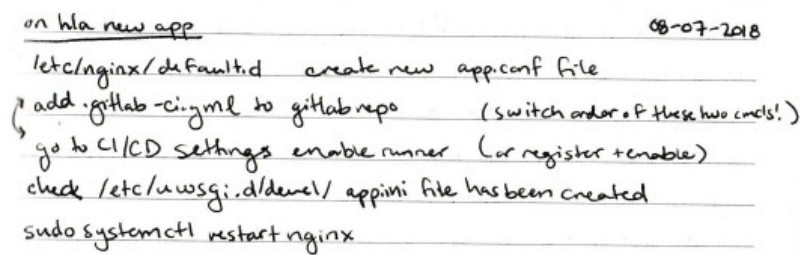 on hla new app 08-07-2018
/etc/nginx/default.d create new app.conf file
add .gitlab-ci.yml to gitlab repo (switch order of these two cmds!)
go to CI/CD settings enable runner (or register + enable)
check /etc/uwsgi.d/devel/ app.ini file has been created
sudo systemctl restart nginx